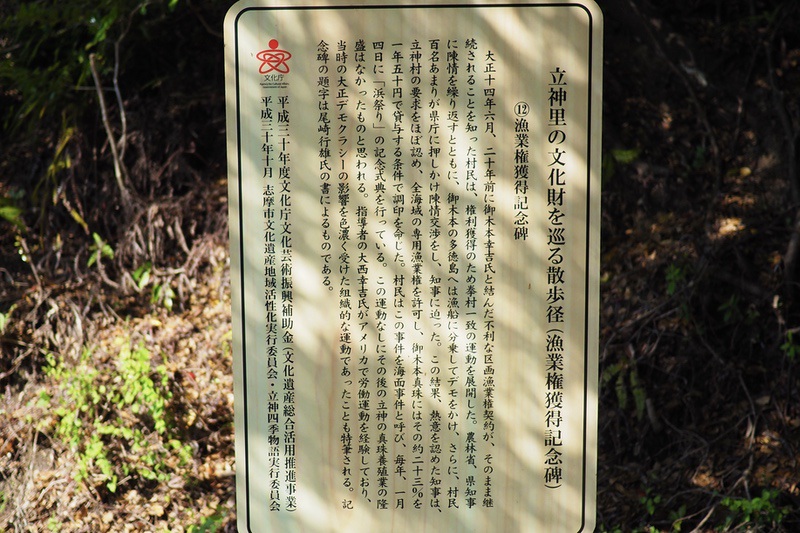 立神里の文化財を巡る散歩径(漁業権獲得記念碑)
⑫漁業権獲得記念碑
大正十四年六月、二十年前に御木本幸吉氏と結んだ不利な区画漁業権契約が、そのまま継
続されることを知った村民は、権利獲得のため挙村一致の運動を展開した。農林省、県知事
に陳情を繰り返すとともに、御木本の多徳島へは漁船に分乗してデモをかけ、さらに、村民
百名あまりが県庁に押しかけ陳情交渉をし、知事に迫った。この結果、熱意を認めた知事は、
立神村の要求をほぼ認め、全海域の専用漁業権を許可し、御木本真珠にはその約二十三%を
一年五十円で貸与する条件で調印を命じた。村民はこの事件を海面事件と呼び、毎年、一月
四日に「浜祭り」の記念式典を行っている。この運動なしにその後の立神の真珠養殖業の隆
盛はなかったものと思われる。指導者の大西幸吉氏がアメリカで労働運動を経験しており、
当時の大正デモクラシーの影響を色濃く受けた組織的な運動であったことも特筆される。記
念碑の題字は尾崎行雄氏の書によるものである。
文化庁
平成三十年度文化庁文化芸術振興補助金(文化遺産総合活用推進事業)
平成三十年十月 志摩市文化遺産地域活性化実行委員会・立神四季物語実行委員会